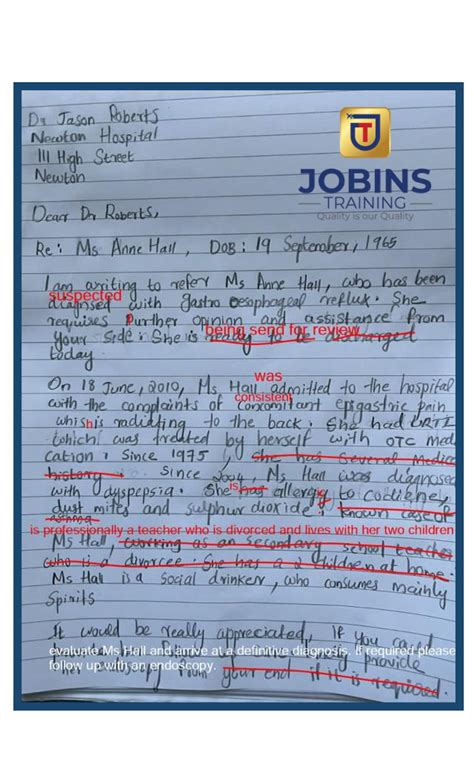 Dr Jason Roberts
Newton Hospital
111 High Street
Newton
JOBINS
TRAINING
Quality is our Quality
Dear Dr Roberts,
Re: Ms Anne Hall, DOB: 19 September, 1965
I am writing to refer Ms Anne Hall, who has been
suspected
diagnosed with gastro oesophageal reflux. She
requires further opinion and assistance from
being send for review
your side. She is ready to be discharged
today.
was
On 18 June, 2010, Ms Hall admitted to the hospital
consistent
with the complaints of concomitant epigastric pain
h
whis is radiating to the back. She had URTI
which was treated by herself with OTC med
cation. Since 1975, she has several medical
history. Since 2004, Ms Hall was diagnosed
is
with dyspepsia. She has allergy to codiene,
dust mites and sulphur dioxide, known case of
asthma
is professionally a teacher who is divorced and lives with her two children
Ms Hall, working as an secondary school teacher
who is a divorcee. She has a 2 children at home.
Ms Hall is a social drinker, who consumes mainly
Spirits
It would be really appreciated, If you could
evaluate Ms Hall and arrive at a definitive diagnosis. If required please
provide
follow up with an endoscopy.
from your end if it is required.